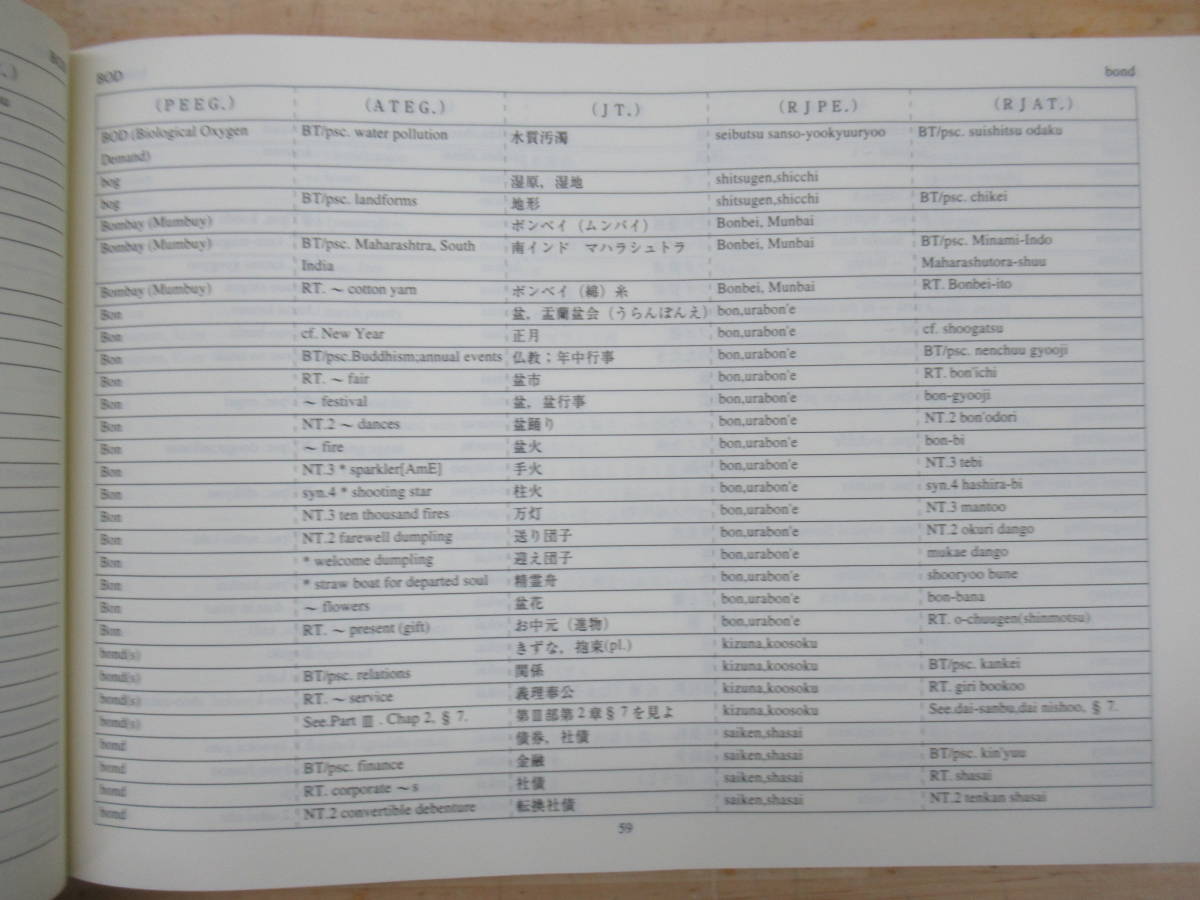 BOD bond
(PEEG.) (ATEG.) (JT.) (RJPE.) (RJAT.)
BOD (Biological Oxygen Demand) BT/psc. water pollution 水質汚濁 seibutsu sanso-yookyuuryoo BT/psc. suishitsu odaku
bog 湿原，湿地 shitsugen,shicchi
bog BT/psc. landforms 地形 shitsugen,shicchi BT/psc. chikei
Bombay (Mumbuy) ボンベイ（ムンバイ） Bonbei, Munbai
Bombay (Mumbuy) BT/psc. Maharashtra, South India 南インド　マハラシュトラ Bonbei, Munbai BT/psc. Minami-Indo Maharashutora-shuu
Bombay (Mumbuy) RT. ～ cotton yarn ボンベイ（綿）糸 Bonbei, Munbai RT. Bonbei-ito
Bon 盆，盂蘭盆会（うらんぼんえ） bon,urabon'e
Bon cf. New Year 正月 bon,urabon'e cf. shoogatsu
Bon BT/psc.Buddhism;annual events 仏教；年中行事 bon,urabon'e BT/psc. nenchuu gyooji
Bon RT. ～ fair 盆市 bon,urabon'e RT. bon'ichi
Bon ～ festival 盆，盆行事 bon,urabon'e bon-gyooji
Bon NT.2 ～ dances 盆踊り bon,urabon'e NT.2 bon'odori
Bon ～ fire 盆火 bon,urabon'e bon-bi
Bon NT.3 * sparkler[AmE] 手火 bon,urabon'e NT.3 tebi
Bon syn.4 * shooting star 柱火 bon,urabon'e syn.4 hashira-bi
Bon NT.3 ten thousand fires 万灯 bon,urabon'e NT.3 mantoo
Bon NT.2 farewell dumpling 送り団子 bon,urabon'e NT.2 okuri dango
Bon * welcome dumpling 迎え団子 bon,urabon'e mukae dango
Bon * straw boat for departed soul 精霊舟 bon,urabon'e shooryoo bune
Bon ～ flowers 盆花 bon,urabon'e bon-bana
Bon RT. ～ present (gift) お中元（進物） bon,urabon'e RT. o-chuugen(shinmotsu)
bond(s) きずな，拘束(pl.) kizuna,koosoku
bond(s) BT/psc. relations 関係 kizuna,koosoku BT/psc. kankei
bond(s) RT. ～ service 義理奉公 kizuna,koosoku RT. giri bookoo
bond(s) See.Part Ⅲ. Chap 2, § 7. 第Ⅲ部第２章§７を見よ kizuna,koosoku See.dai-sanbu,dai nishoo, § 7.
bond 債券，社債 saiken,shasai
bond BT/psc. finance 金融 saiken,shasai BT/psc. kin'yuu
bond RT. corporate ～s 社債 saiken,shasai RT. shasai
bond NT.2 convertible debenture 転換社債 saiken,shasai NT.2 tenkan shasai
59